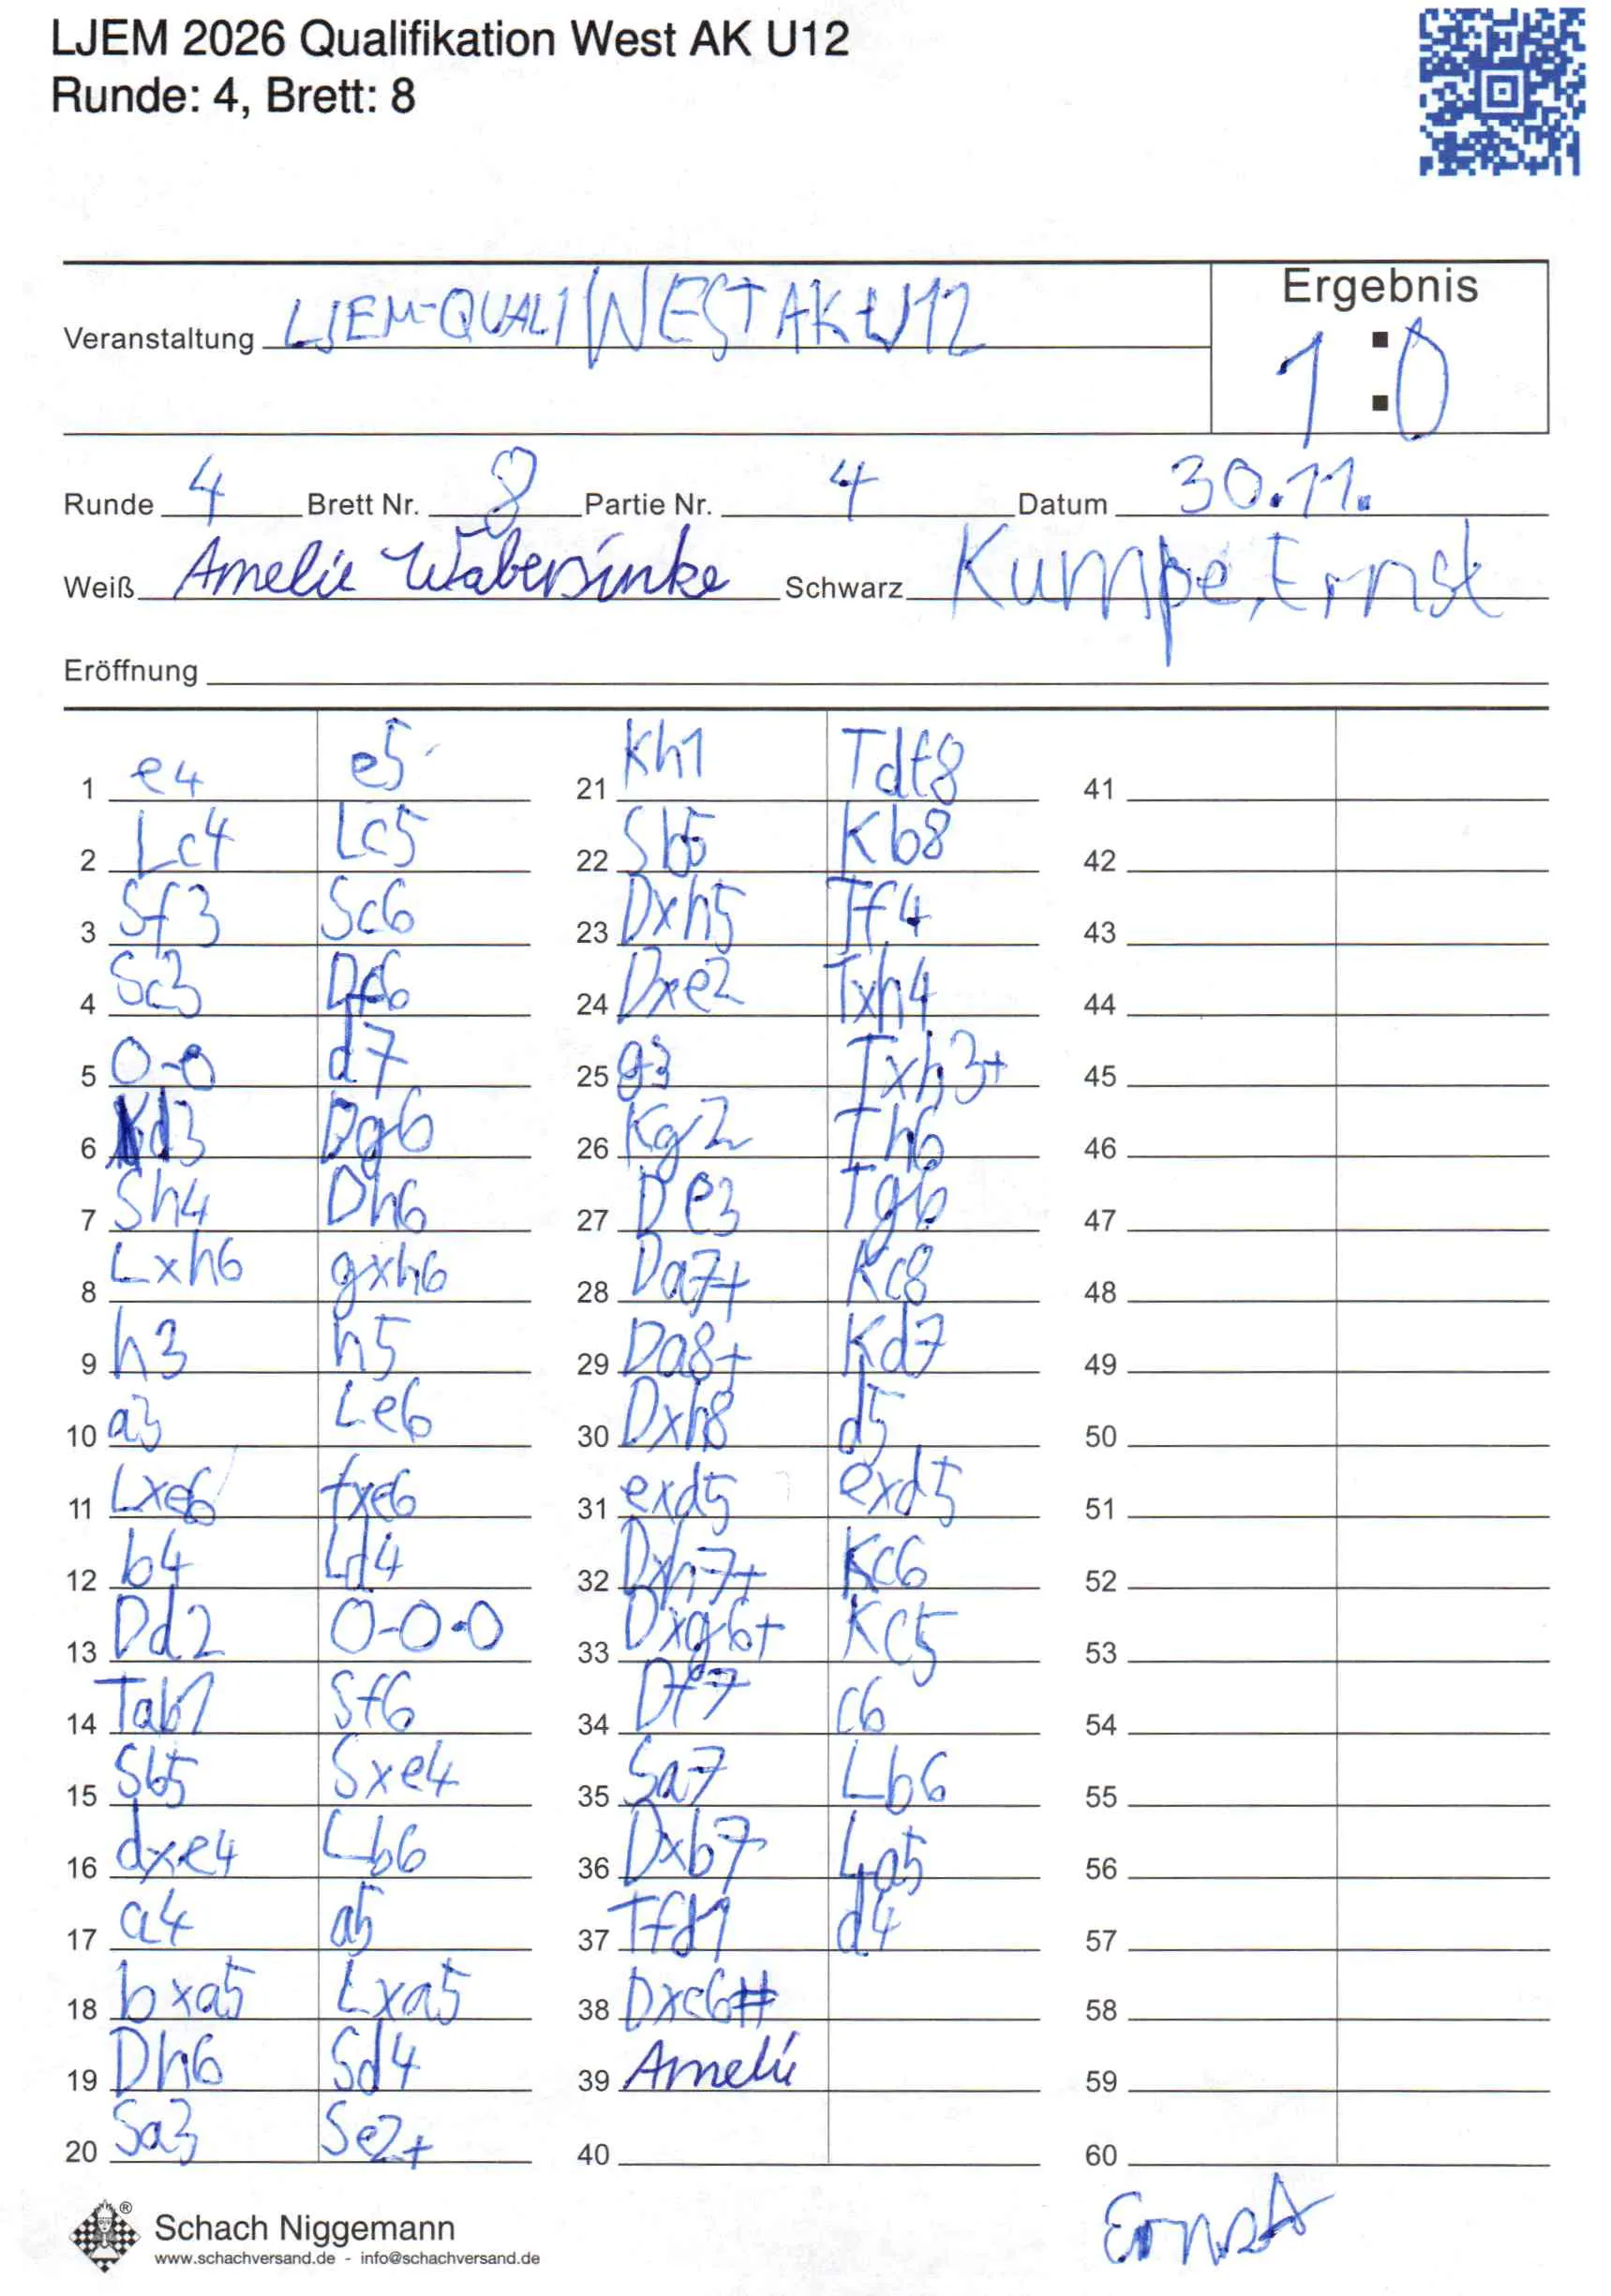 LJEM 2026 Qualifikation West AK U12
Runde: 4, Brett: 8
Ergebnis
Veranstaltung LJEM-QUALI WEST AK U12
1:0
Runde 4 Brett Nr. 8 Partie Nr. 4 Datum 30.11.
Weiß Amelie Wabersinke Schwarz Kumpe, Ernst
Eröffnung
1 e4 e5
2 Lc4 Lc5
3 Sf3 Sc6
4 Sc3 Df6
5 0-0 d7
6 d3 Dg6
7 Sh4 Dh6
8 Lxh6 gxh6
9 h3 h5
10 a3 Le6
11 Lxe6 fxe6
12 b4 Ld4
13 Dd2 0-0-0
14 Tab1 Sf6
15 Sb5 Sxe4
16 dxe4 Lb6
17 a4 a5
18 bxa5 Lxa5
19 Dh6 Sd4
20 Sa3 Se2+
21 Kh1 Tdf8
22 Sb5 Kb8
23 Dxh5 Tf4
24 Dxe2 Txh4
25 g3 Txh3+
26 Kg2 Th6
27 De3 Tg6
28 Da7+ Kc8
29 Da8+ Kd7
30 Dxh8 d5
31 exd5 exd5
32 Dxh7+ Kc6
33 Dxg6+ Kc5
34 Df7 c6
35 Sa7 Lb6
36 Dxb7 La5
37 Tfd1 d4
38 Dxc6#
39 Amelie
40
41
42
43
44
45
46
47
48
49
50
51
52
53
54
55
56
57
58
59
60
Ernst
Schach Niggemann
www.schachversand.de - info@schachversand.de